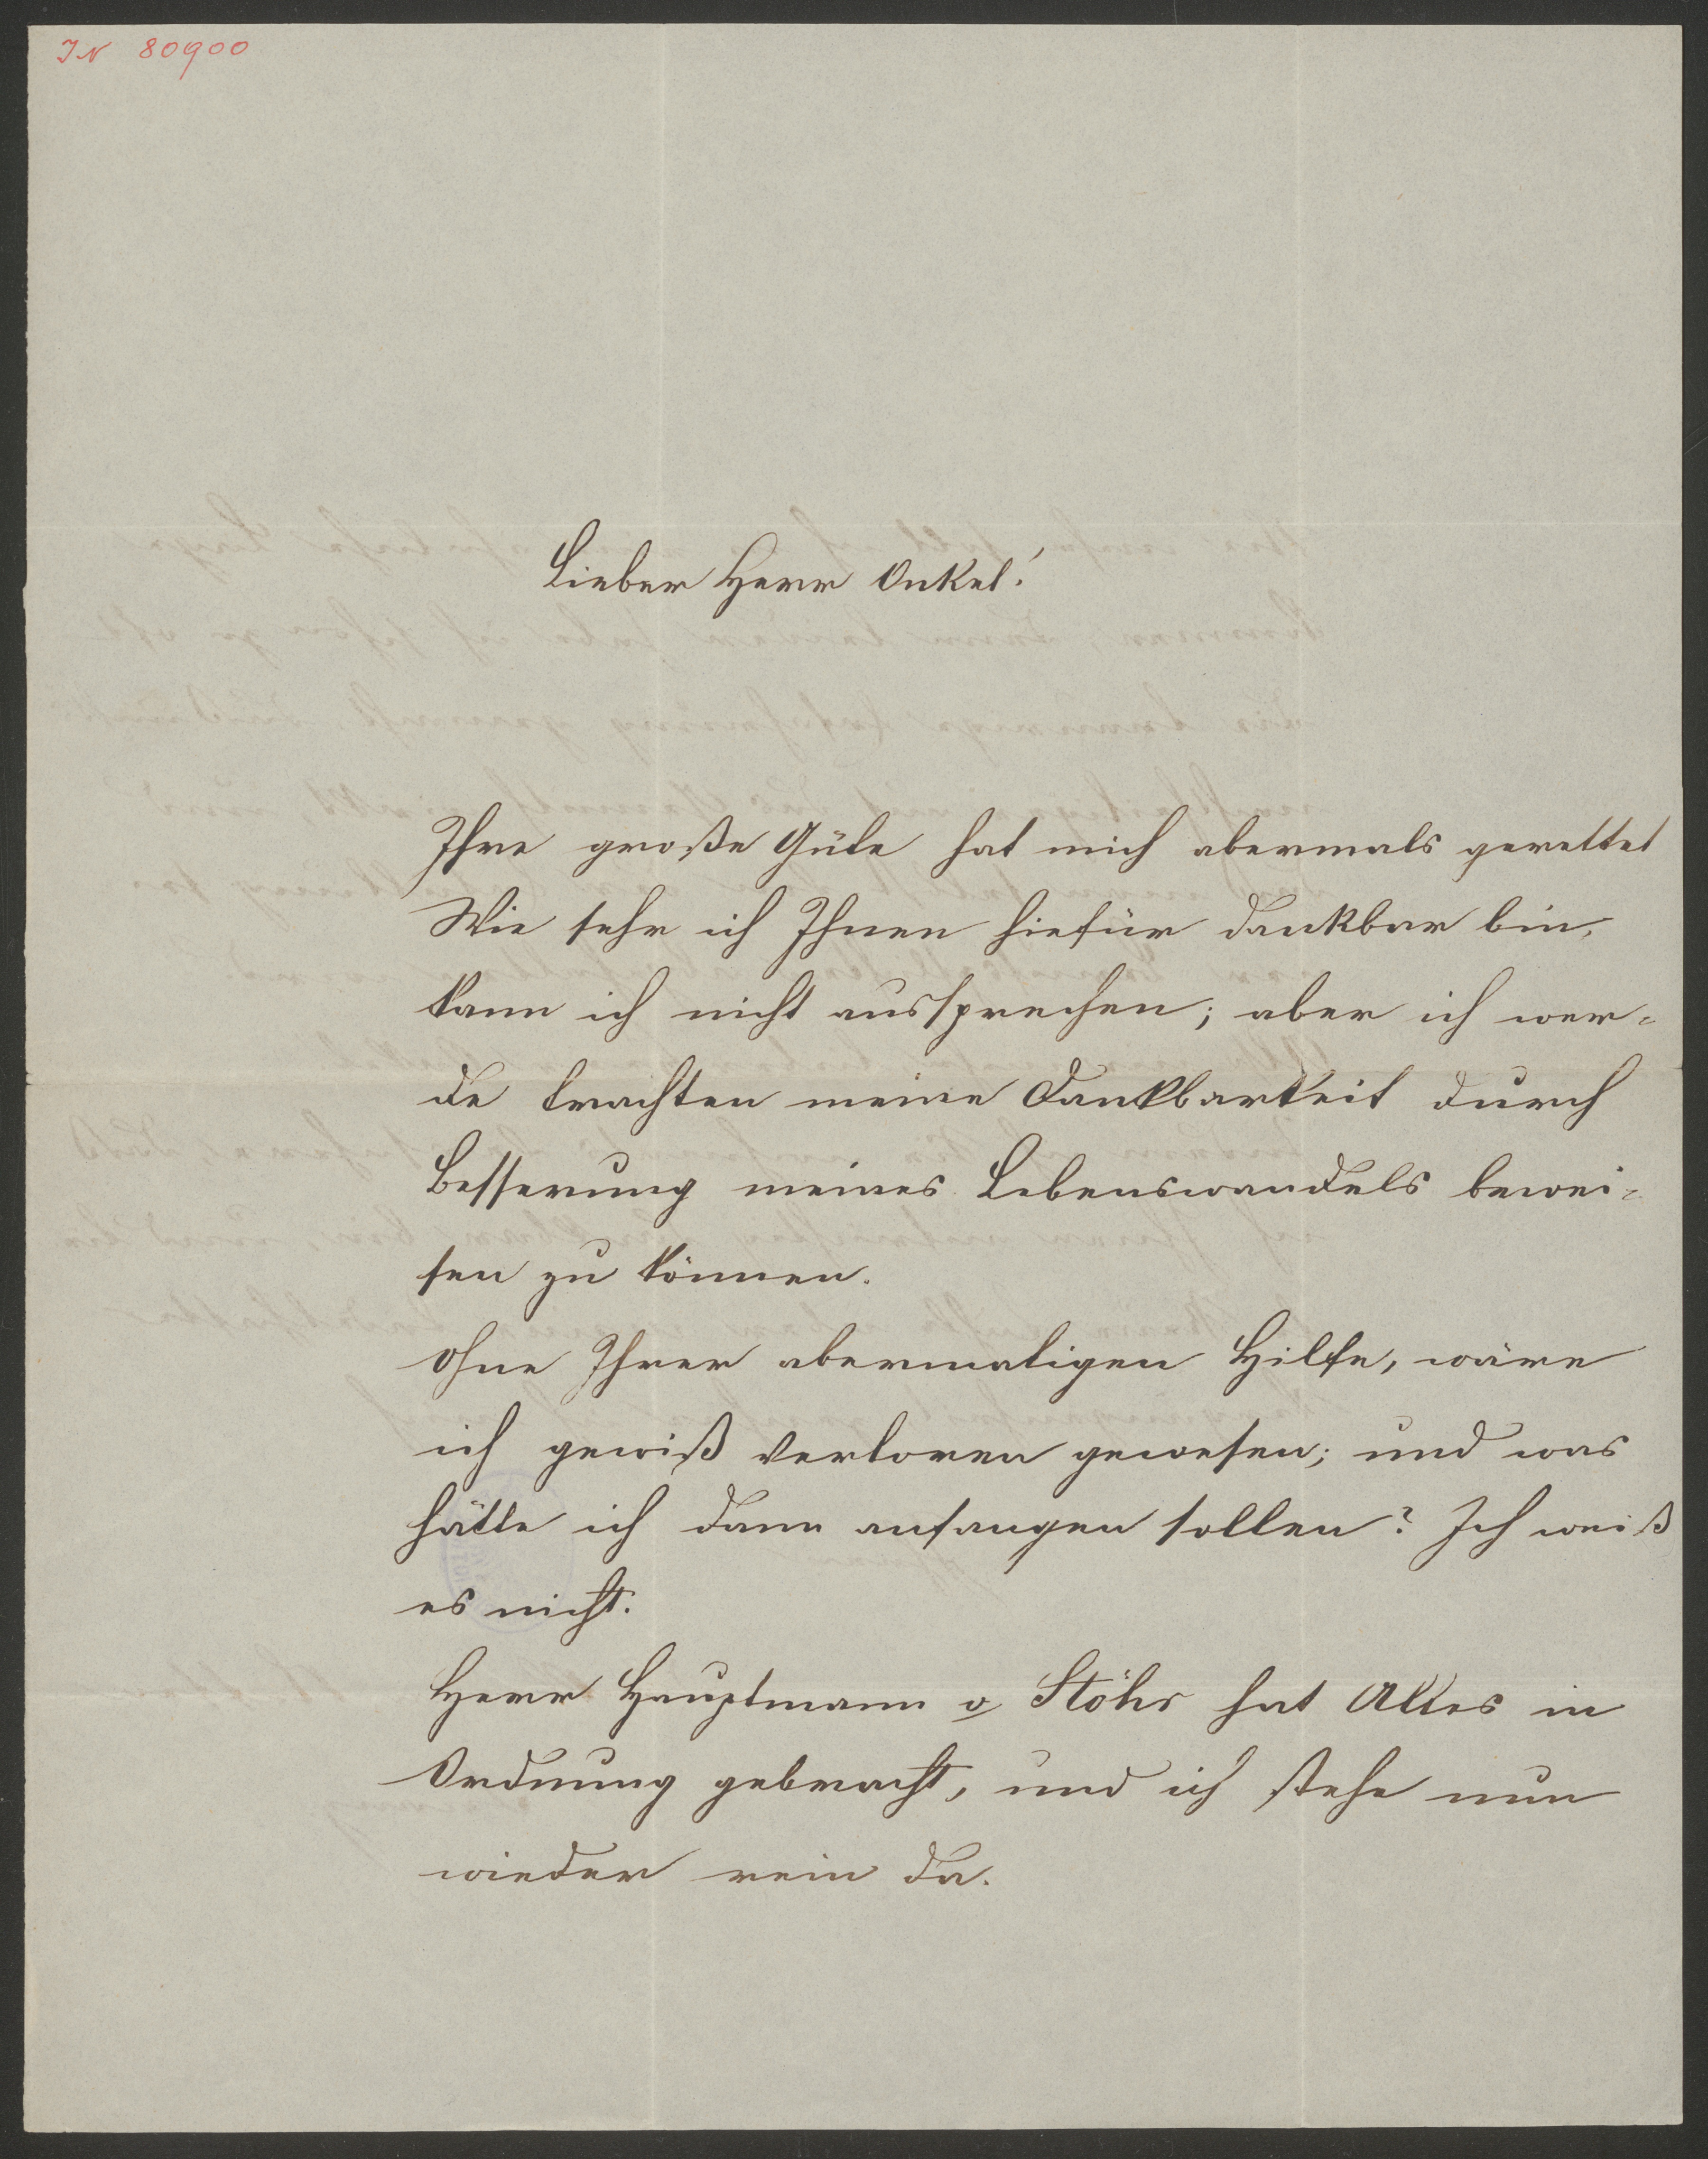 IN 80900
Lieber Herr Onkel!
Ihre große Güte hat mich abermals gerettet
Wie sehr ich Ihnen hiefür dankbar bin,
kann ich nicht aussprechen; aber ich wer-
de trachten meine Dankbarkeit durch
Besserung meines Lebenswandels bewei-
sen zu können.
Ohne Ihrer abermaligen Hilfe, wäre
ich gewiß verloren gewesen; und was
hätte ich dann anfangen sollen? Ich weiß
es nicht.
Herr Hauptmann v Stöhr hat Alles in
Ordnung gebracht, und ich stehe nun
wieder rein da.